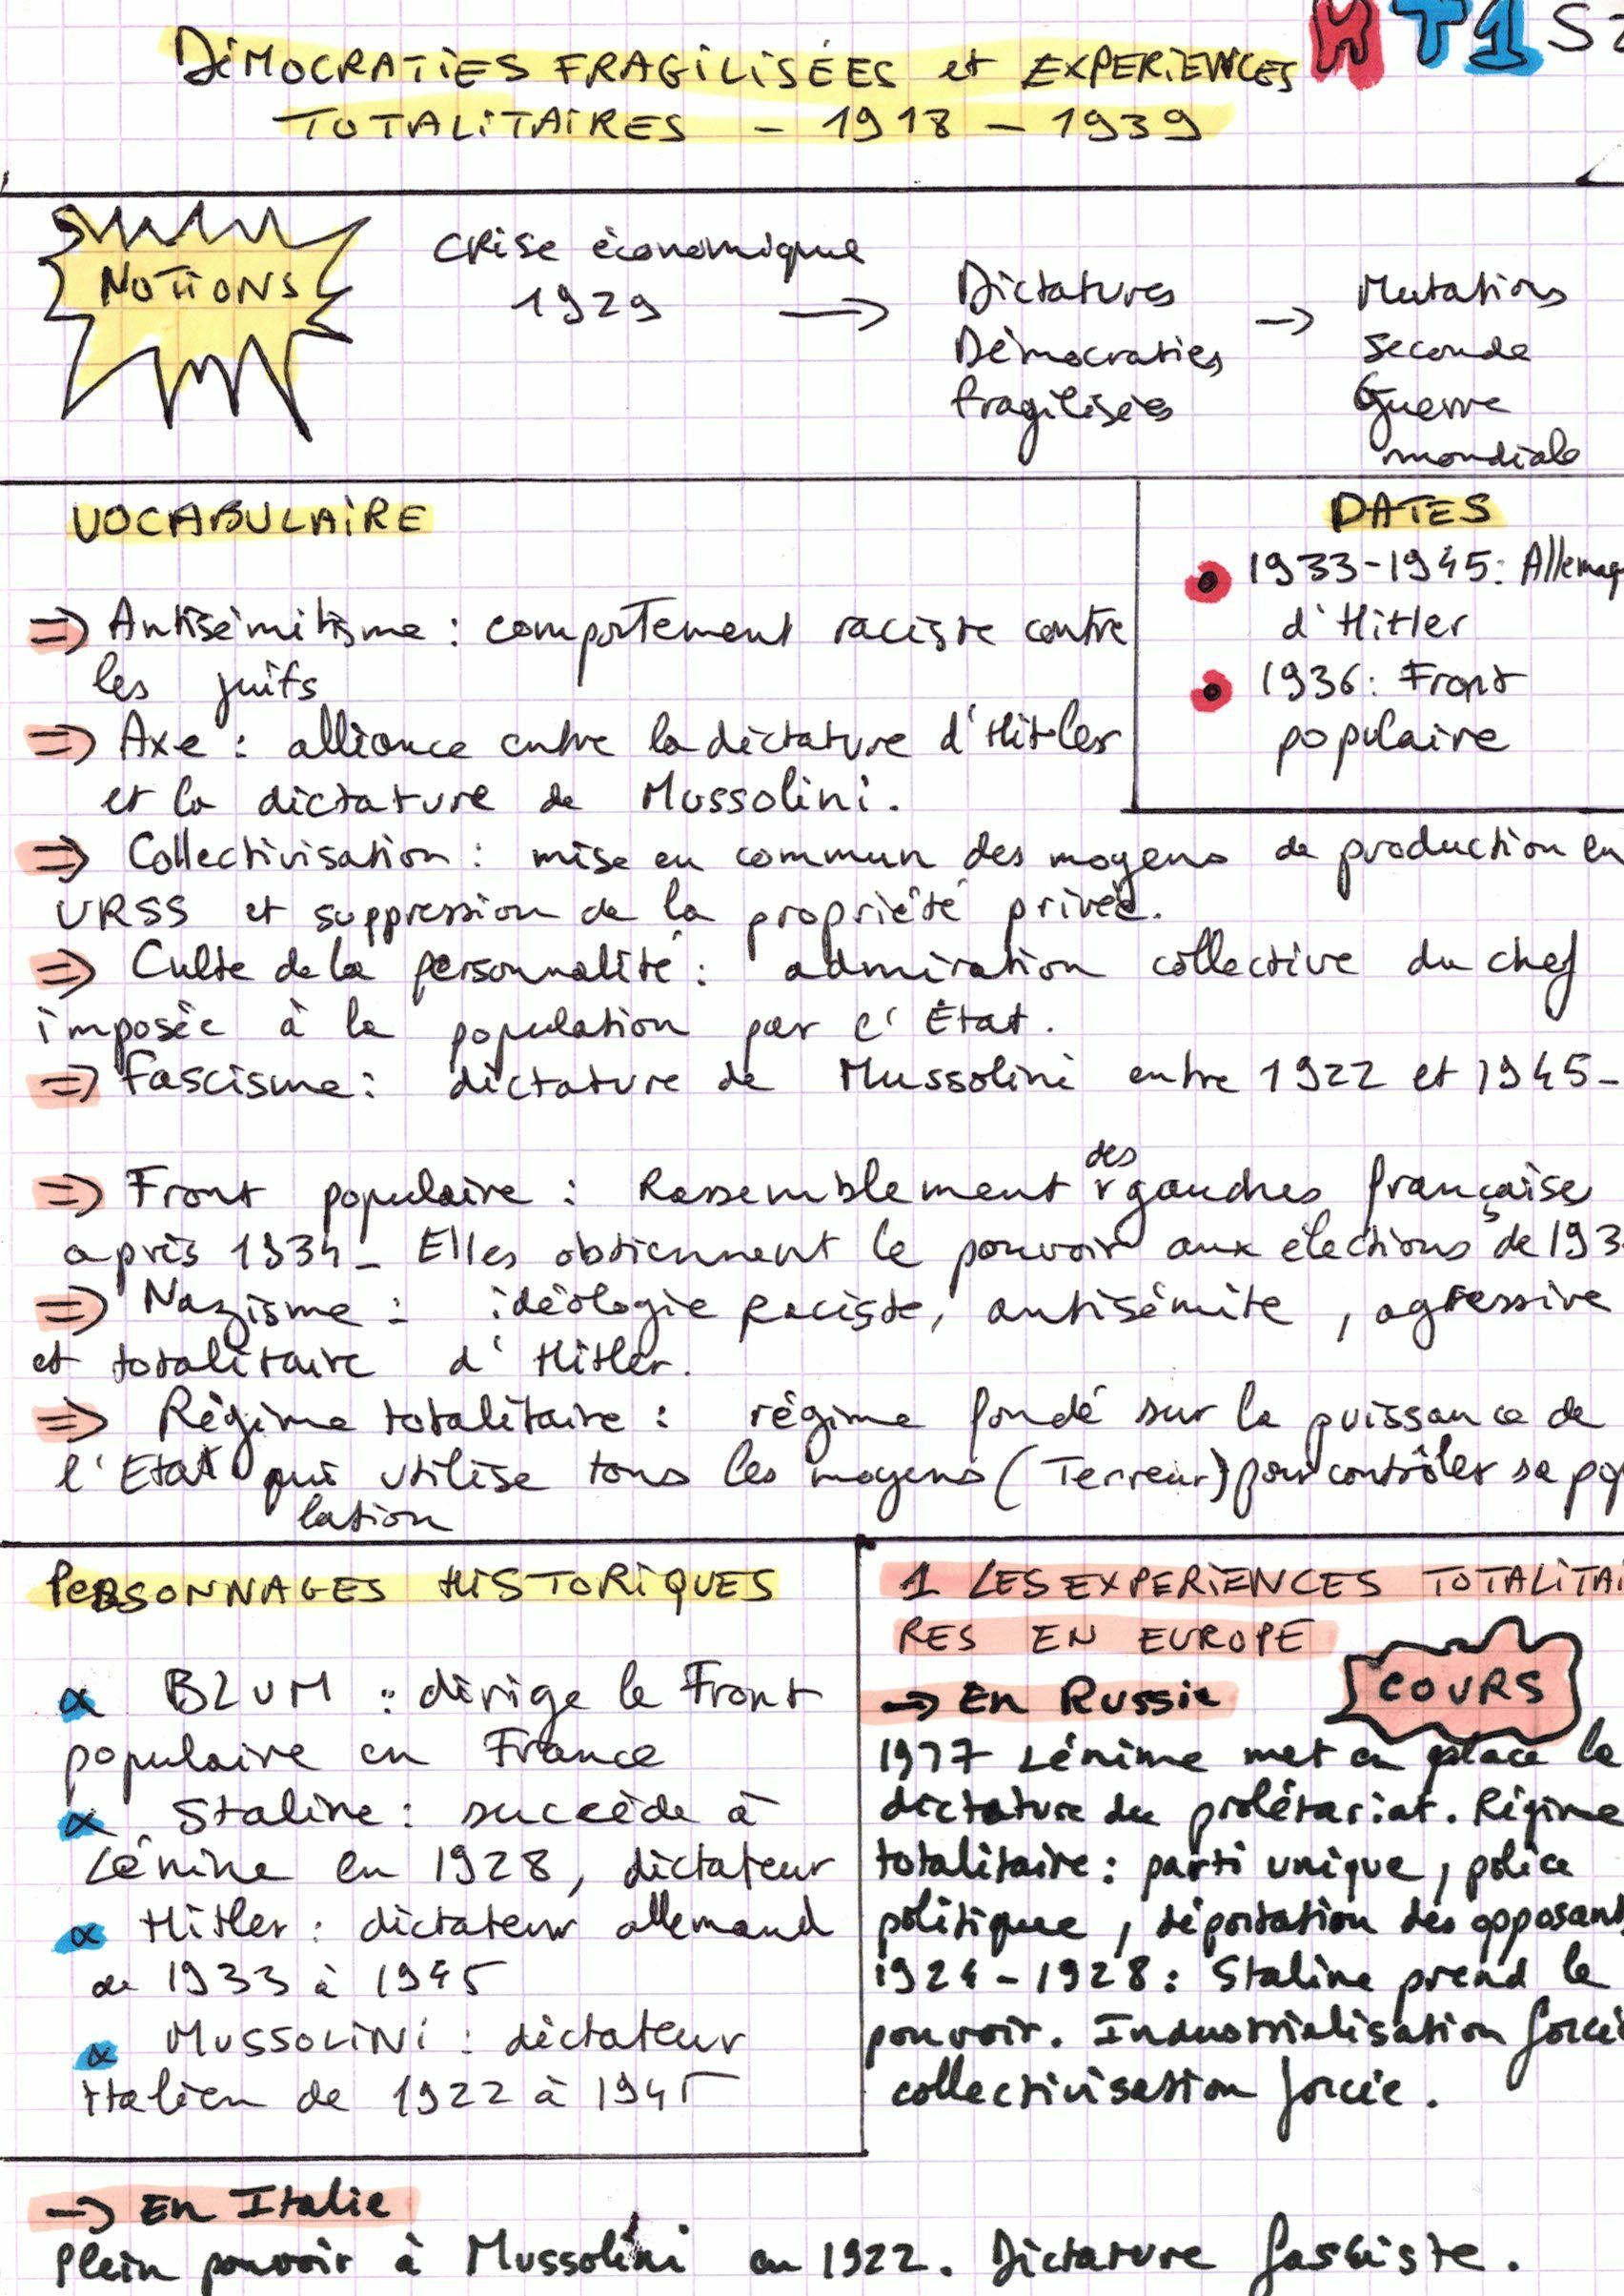 H T1 S
DÉMOCRATIES FRAGILISÉES et EXPERIENCES
TOTALITAIRES - 1918 - 1939
NOTIONS
Crise économique
1929 →
Dictatures
Démocraties
fragilisées
→ Mutations
Seconde
Guerre
mondiale
VOCABULAIRE
⇒ Antisémitisme : comportement raciste contre
les juifs
⇒ Axe : alliance entre la dictature d'Hitler
et la dictature de Mussolini.
DATES
1933-1945: Allemag
d'Hitler
1936: Front
populaire
⇒ Collectivisation : mise en commun des moyens de production en
URSS et suppression de la propriété privée.
⇒ Culte de la personnalité : admiration collective du chef
imposée à la population par l'État.
⇒ Fascisme : dictature de Mussolini entre 1922 et 1945-
⇒ Front populaire : Rassemblement des gauches française
après 1934_ Elles obtiennent le pouvoir aux élections de 193
⇒ Nazisme : idéologie raciste, antisémite, agressive
et totalitaire d'Hitler.
⇒ Régime totalitaire : régime fondé sur la puissance de
l'Etat qui utilise tous les moyens (Terreur) pour contrôler sa pop
lation
PERSONNAGES HISTORIQUES
α BLUM : dirige le Front
populaire en France
α Staline : succède à
Lénine en 1928, dictateur
α Hitler : dictateur allemand
de 1933 à 1945
α MUSSOLINI : dictateur
italien de 1922 à 1945
1 LES EXPERIENCES TOTALITAI
RES EN EUROPE
→ En Russie
COURS
1917 Lénine met en place la
dictature du prolétariat. Régime
totalitaire : parti unique, police
politique, déportation des opposants
1924-1928 : Staline prend le
pouvoir. Industrialisation forcé
collectivisation forcée.
→ En Italie
Plein pouvoir à Mussolini en 1922. Dictature fasciste.